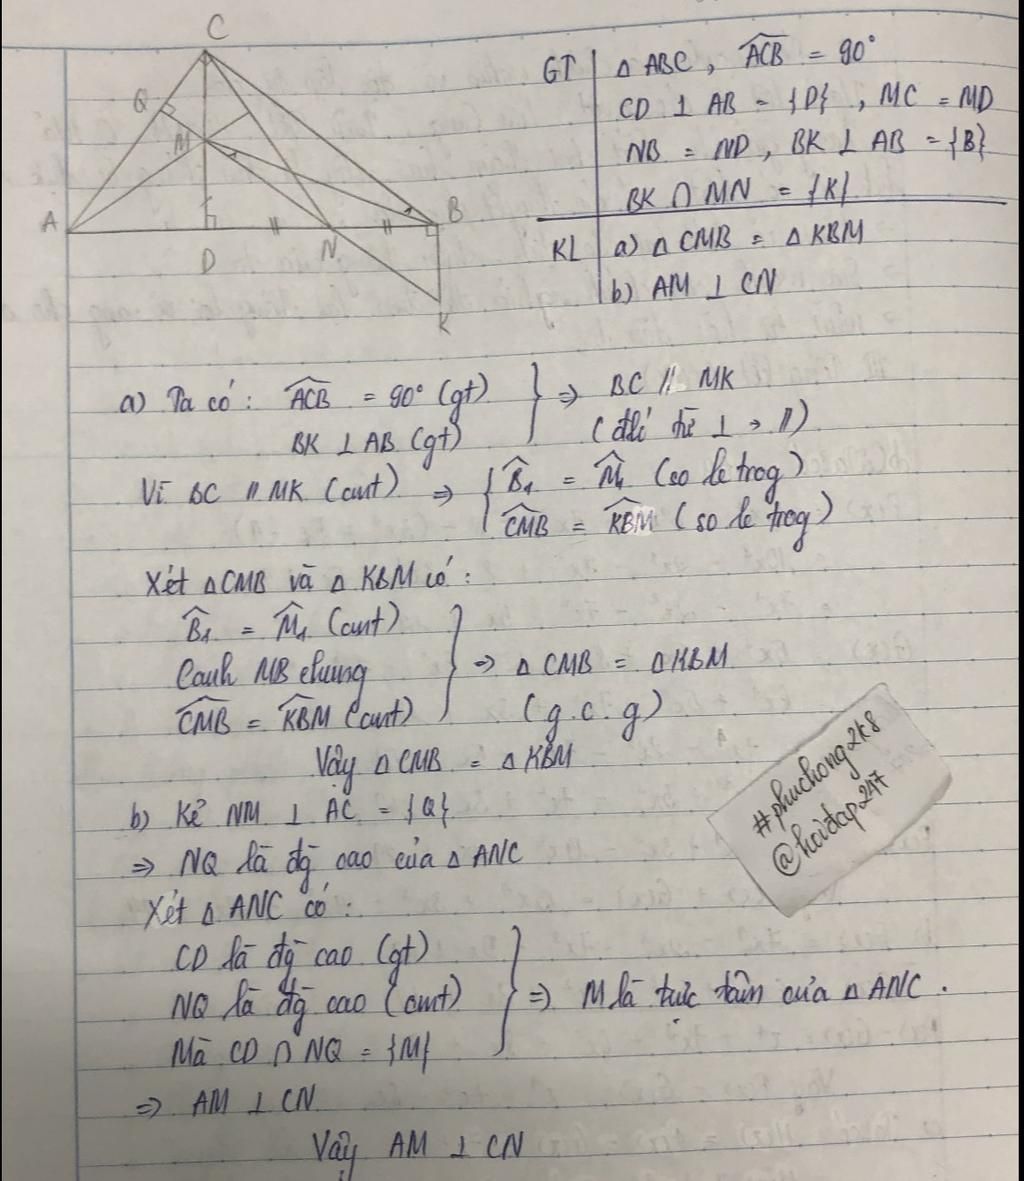 C
Q
M
A
B
D
N
K
GT | Δ ABC , ACB = 90°
CD ⊥ AB = {D} , MC = MD
NB = ND , BK ⊥ AB = {B}
BK ∩ MN = {K}
KL | a) Δ CMB = Δ KBM
b) AM ⊥ CN
a) Ta có : ACB = 90° (gt)
BK ⊥ AB (gt)
} => BC // MK
(đlí từ ⊥ → //)
Vì BC // MK (cmt) => { B1 = M1 (so le trog)
CMB = KBM (so le trog)
Xét Δ CMB và Δ KBM có :
B1 = M1 (cmt)
Cạnh MB chung
CMB = KBM (cmt)
} => Δ CMB = Δ KBM
(g.c.g)
Vậy Δ CMB = Δ KBM
b) Kẻ NM ⊥ AC = {Q}
=> NQ là đg cao của Δ ANC
Xét Δ ANC có :
CD là đg cao (gt)
NQ là đg cao (cmt)
Mà CD ∩ NQ = {M}
} => M là trực tâm của Δ ANC .
=> AM ⊥ CN
Vậy AM ⊥ CN
#phuchong2k8
@hoidap247